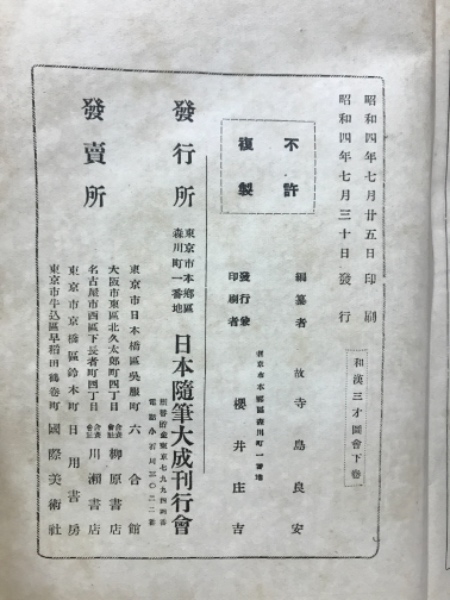 昭和四年七月廿五日印刷
昭和四年七月三十日發行
和漢三才圖會下卷
不許
複製
編纂者 故寺島良安
東京市本鄕區森川町一番地
發行兼
印刷者 櫻井庄吉
發行所
東京市本鄕區
森川町一番地
日本隨筆大成刊行會
發賣所
東京市日本橋區吳服町 六合館
大阪市東區北久太郎町四丁目 合資會社 柳原書店
名古屋市西區下長者町四丁目 合資會社 川瀨書店
東京市京橋區鈴木町 日用書房
東京市牛込區早稻田鶴卷町 國際美術社